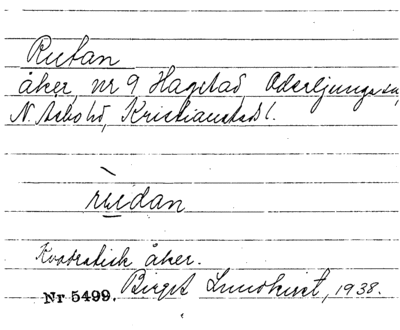 Rutan
åker, nr 9 Hagstad Oderljunga sn,
N. Åsbo hd, Kristianstads l.
rùdan
Kvadratisk åker.
Nr 5499. Birgit Lundkvist, 1938.